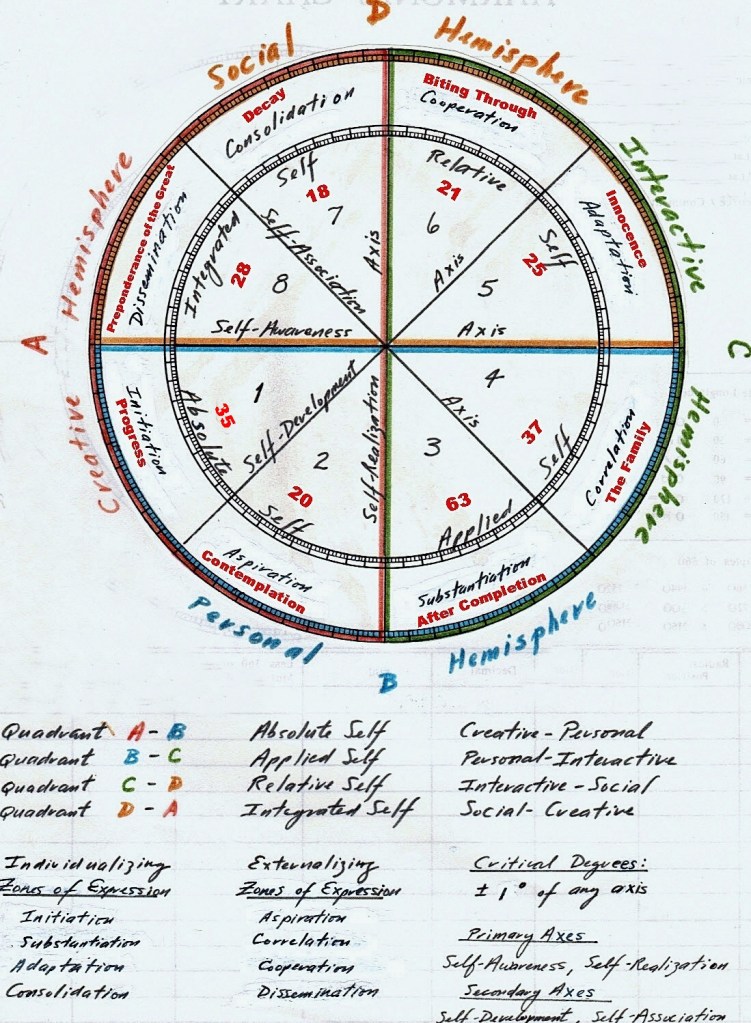 D
Social Hemisphere
Creative Hemisphere
Interactive Hemisphere
Personal Hemisphere
A
C
B
Decay
Consolidation
Biting Through
Cooperation
Innocence
Adaptation
Preponderance of the Great
Dissemination
Progress
Initiation
Contemplation
Aspiration
Substantiation
After Completion
Correlation
The Family
Integrated Self
Relative Self
Absolute Self
Applied Self
18
7
21
6
25
5
28
8
35
1
20
2
63
3
37
4
Self-Association Axis
Self-Awareness Axis
Self-Development Axis
Self-Realization Axis
Quadrant A - B Absolute Self Creative-Personal
Quadrant B - C Applied Self Personal-Interactive
Quadrant C - D Relative Self Interactive-Social
Quadrant D - A Integrated Self Social-Creative
Individualizing
Zones of Expression
Initiation
Substantiation
Adaptation
Consolidation
Externalizing
Zones of Expression
Aspiration
Correlation
Cooperation
Dissemination
Critical Degrees:
± 1° of any axis
Primary Axes
Self-Awareness, Self-Realization
Secondary Axes
Self-Development, Self-Association